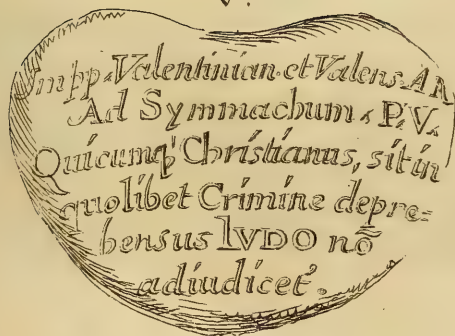 V.
Impp. Valentinian. et Valens. AA.
Ad Symmachum. P. V.
Quicumq; Christianus, sit in
quolibet Crimine depre=
hensus lVDO nō
adiudicet.